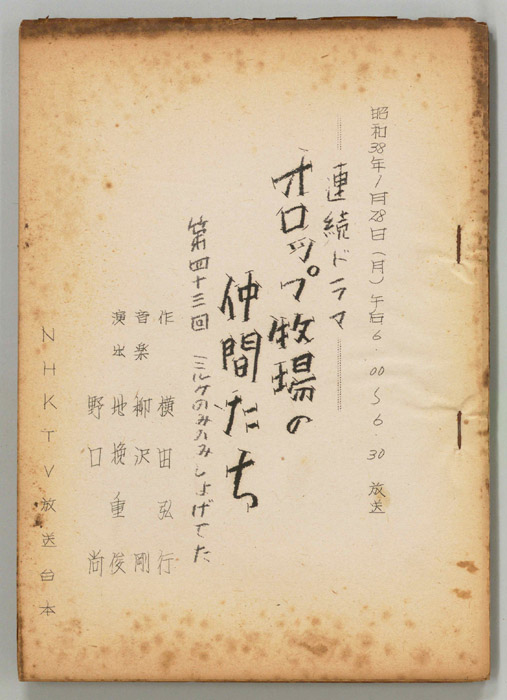 昭和38年1月28日(月)午后6.00〜6.30 放送
連続ドラマ
オロップ牧場の
仲間たち
第四十三回 ミルクのみのみしょげてた
作 横田弘行
音楽 柳沢剛
演出 地挽重俊
野口尚
NHKTV放送台本